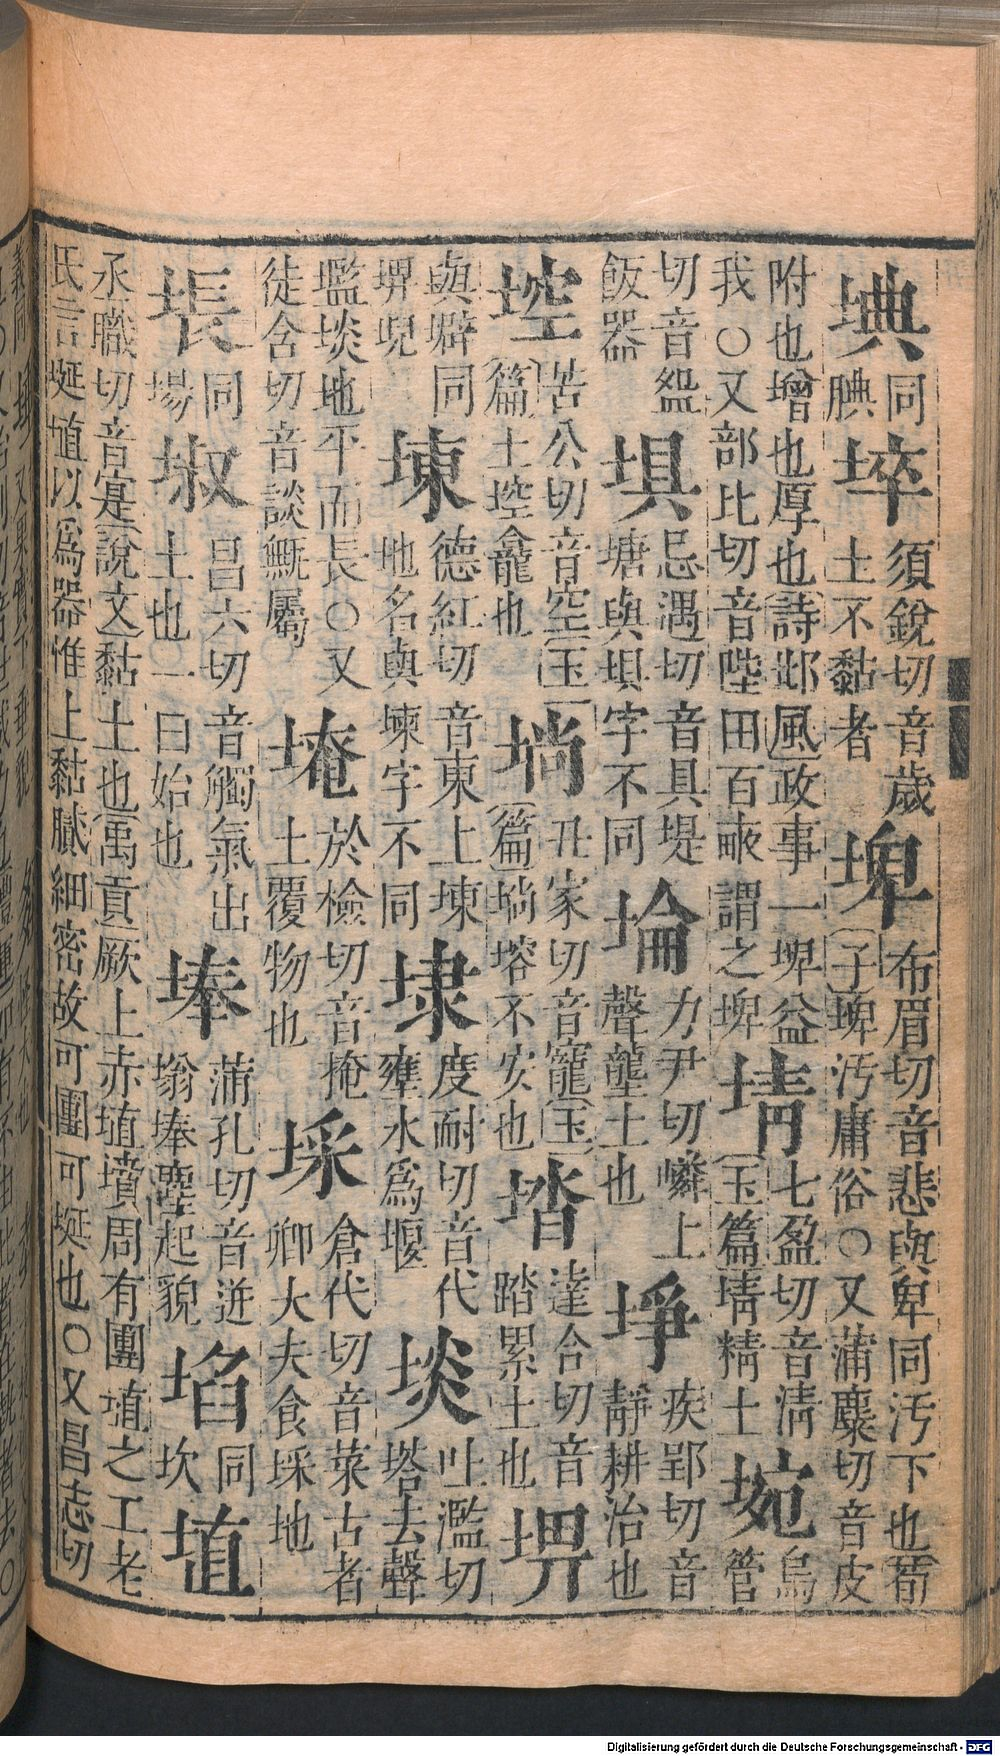 㙉同腆埣須銳切音歲土不黏者埤布眉切音悲與卑同汚下也荀子埤汚庸俗○又蒲麋切音皮
附也增也厚也詩邶風政事一埤益我○又部比切音陛田百畝謂之埤埥七盈切音淸玉篇埥精土埦烏管
切音盌飯器埧忌遇切音具堤塘與垻字不同埨力尹切鄰上聲壟土也埩疾郢切音靜耕治也
埪苦公切音空玉篇土埪龕也埫丑家切音寵玉篇埫塎不安也達合切音踏累土也
與壀同堄埬德紅切音東上埬地名與堜字不同埭度耐切音代壅水爲堰埮吐濫切塔去聲
壏埮地平而長○又徒含切音談甒屬埯於檢切音掩土覆物也埰倉代切音菜古者卿大夫食埰地
㙊同場埱昌六切音觸氣出土也○一曰始也埲蒲孔切音迸塕埲塵起貌埳同坎埴
丞職切音寔說文黏土也禹貢厥土赤埴墳周有團埴之工老氏言埏埴以爲器惟土黏膩細密故可團可埏也○又昌志切
Digitalisierung gefördert durch die Deutsche Forschungsgemeinschaft - DFG